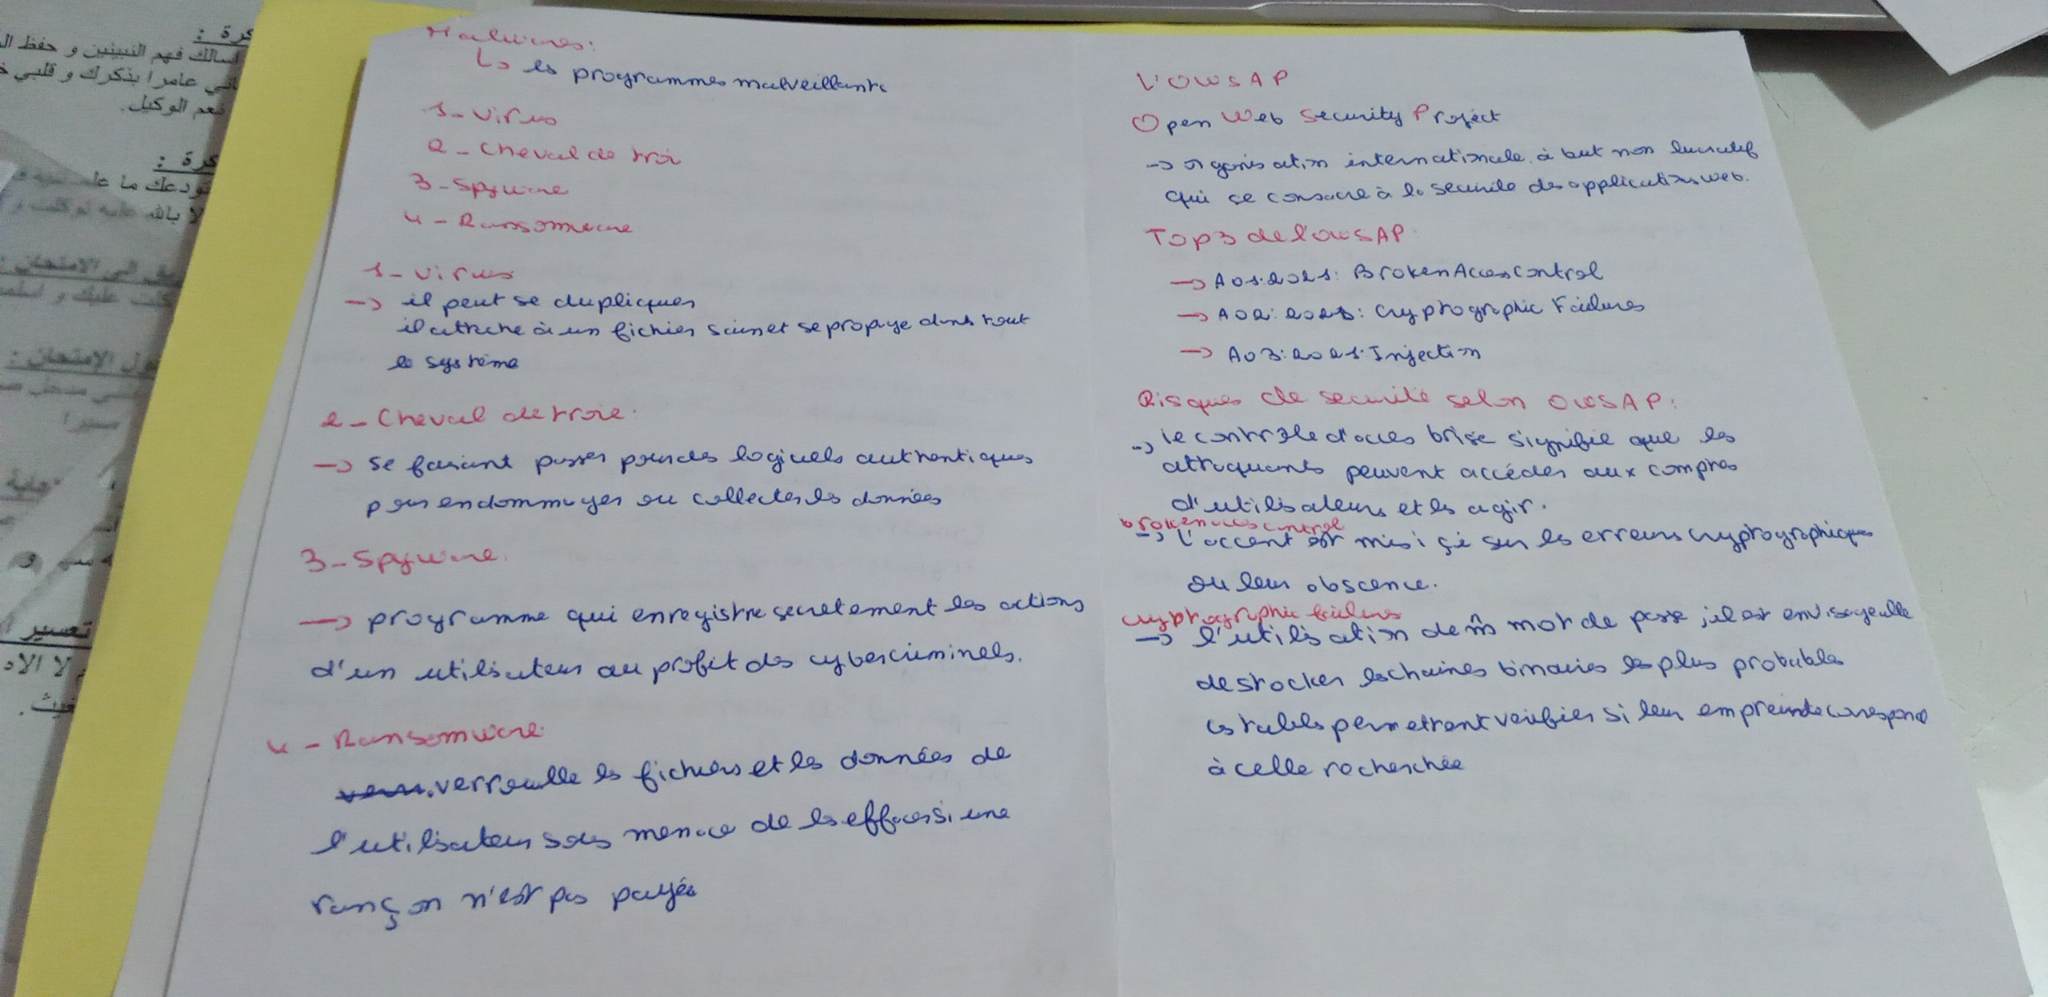 كرة :
اسالك فهم النبيين و حفظ
عامرا بذكرك و قلبي
نعم الوكيل.
كرة :
Malwares:
↳ les programmes malveillants
1- Virus
2 - Cheval de troi
3- Spyware
4 - Ransomware
1- Virus
→ il peut se dupliquer
il attache à un fichier sain et se propage dans tout
le système
2 - Cheval de troie.
→ Se faisant passer pour des logiciels authentiques
pour endommager ou collecter les données
3 - Spyware.
→ programme qui enregistre secretement les actions
d'un utilisateur au profit des cybercriminels.
4 - Ransomware.
verrouille les fichiers et les données de
l'utilisateur sous menace de les effacer si une
rançon n'est pas payée
L'OWSAP
Open Web Security Project
→ organisation internationale à but non lucratif
qui se consacre à la securité des applications web.
Top 3 de l'OWSAP.
→ A01:2021: Broken Access Control
→ A02:2021: Cryptographic Failures
→ A03:2021: Injection
Risques de securité selon OWSAP:
→ le contrôle d'acces brise signifie que les
attaquants peuvent accéder aux comptes
d'utilisateurs et les agir.
broken acces control
→ L'accent est mis içi sur les erreurs cryptographiques
ou leur abscence.
cryptographic failures
→ l'utilisation de m̂ mot de passe, il est envisageable
de stocker les chaines binaires les plus probables
ces tables permettant verifier si leur empreinte correspond
à celle recherchée